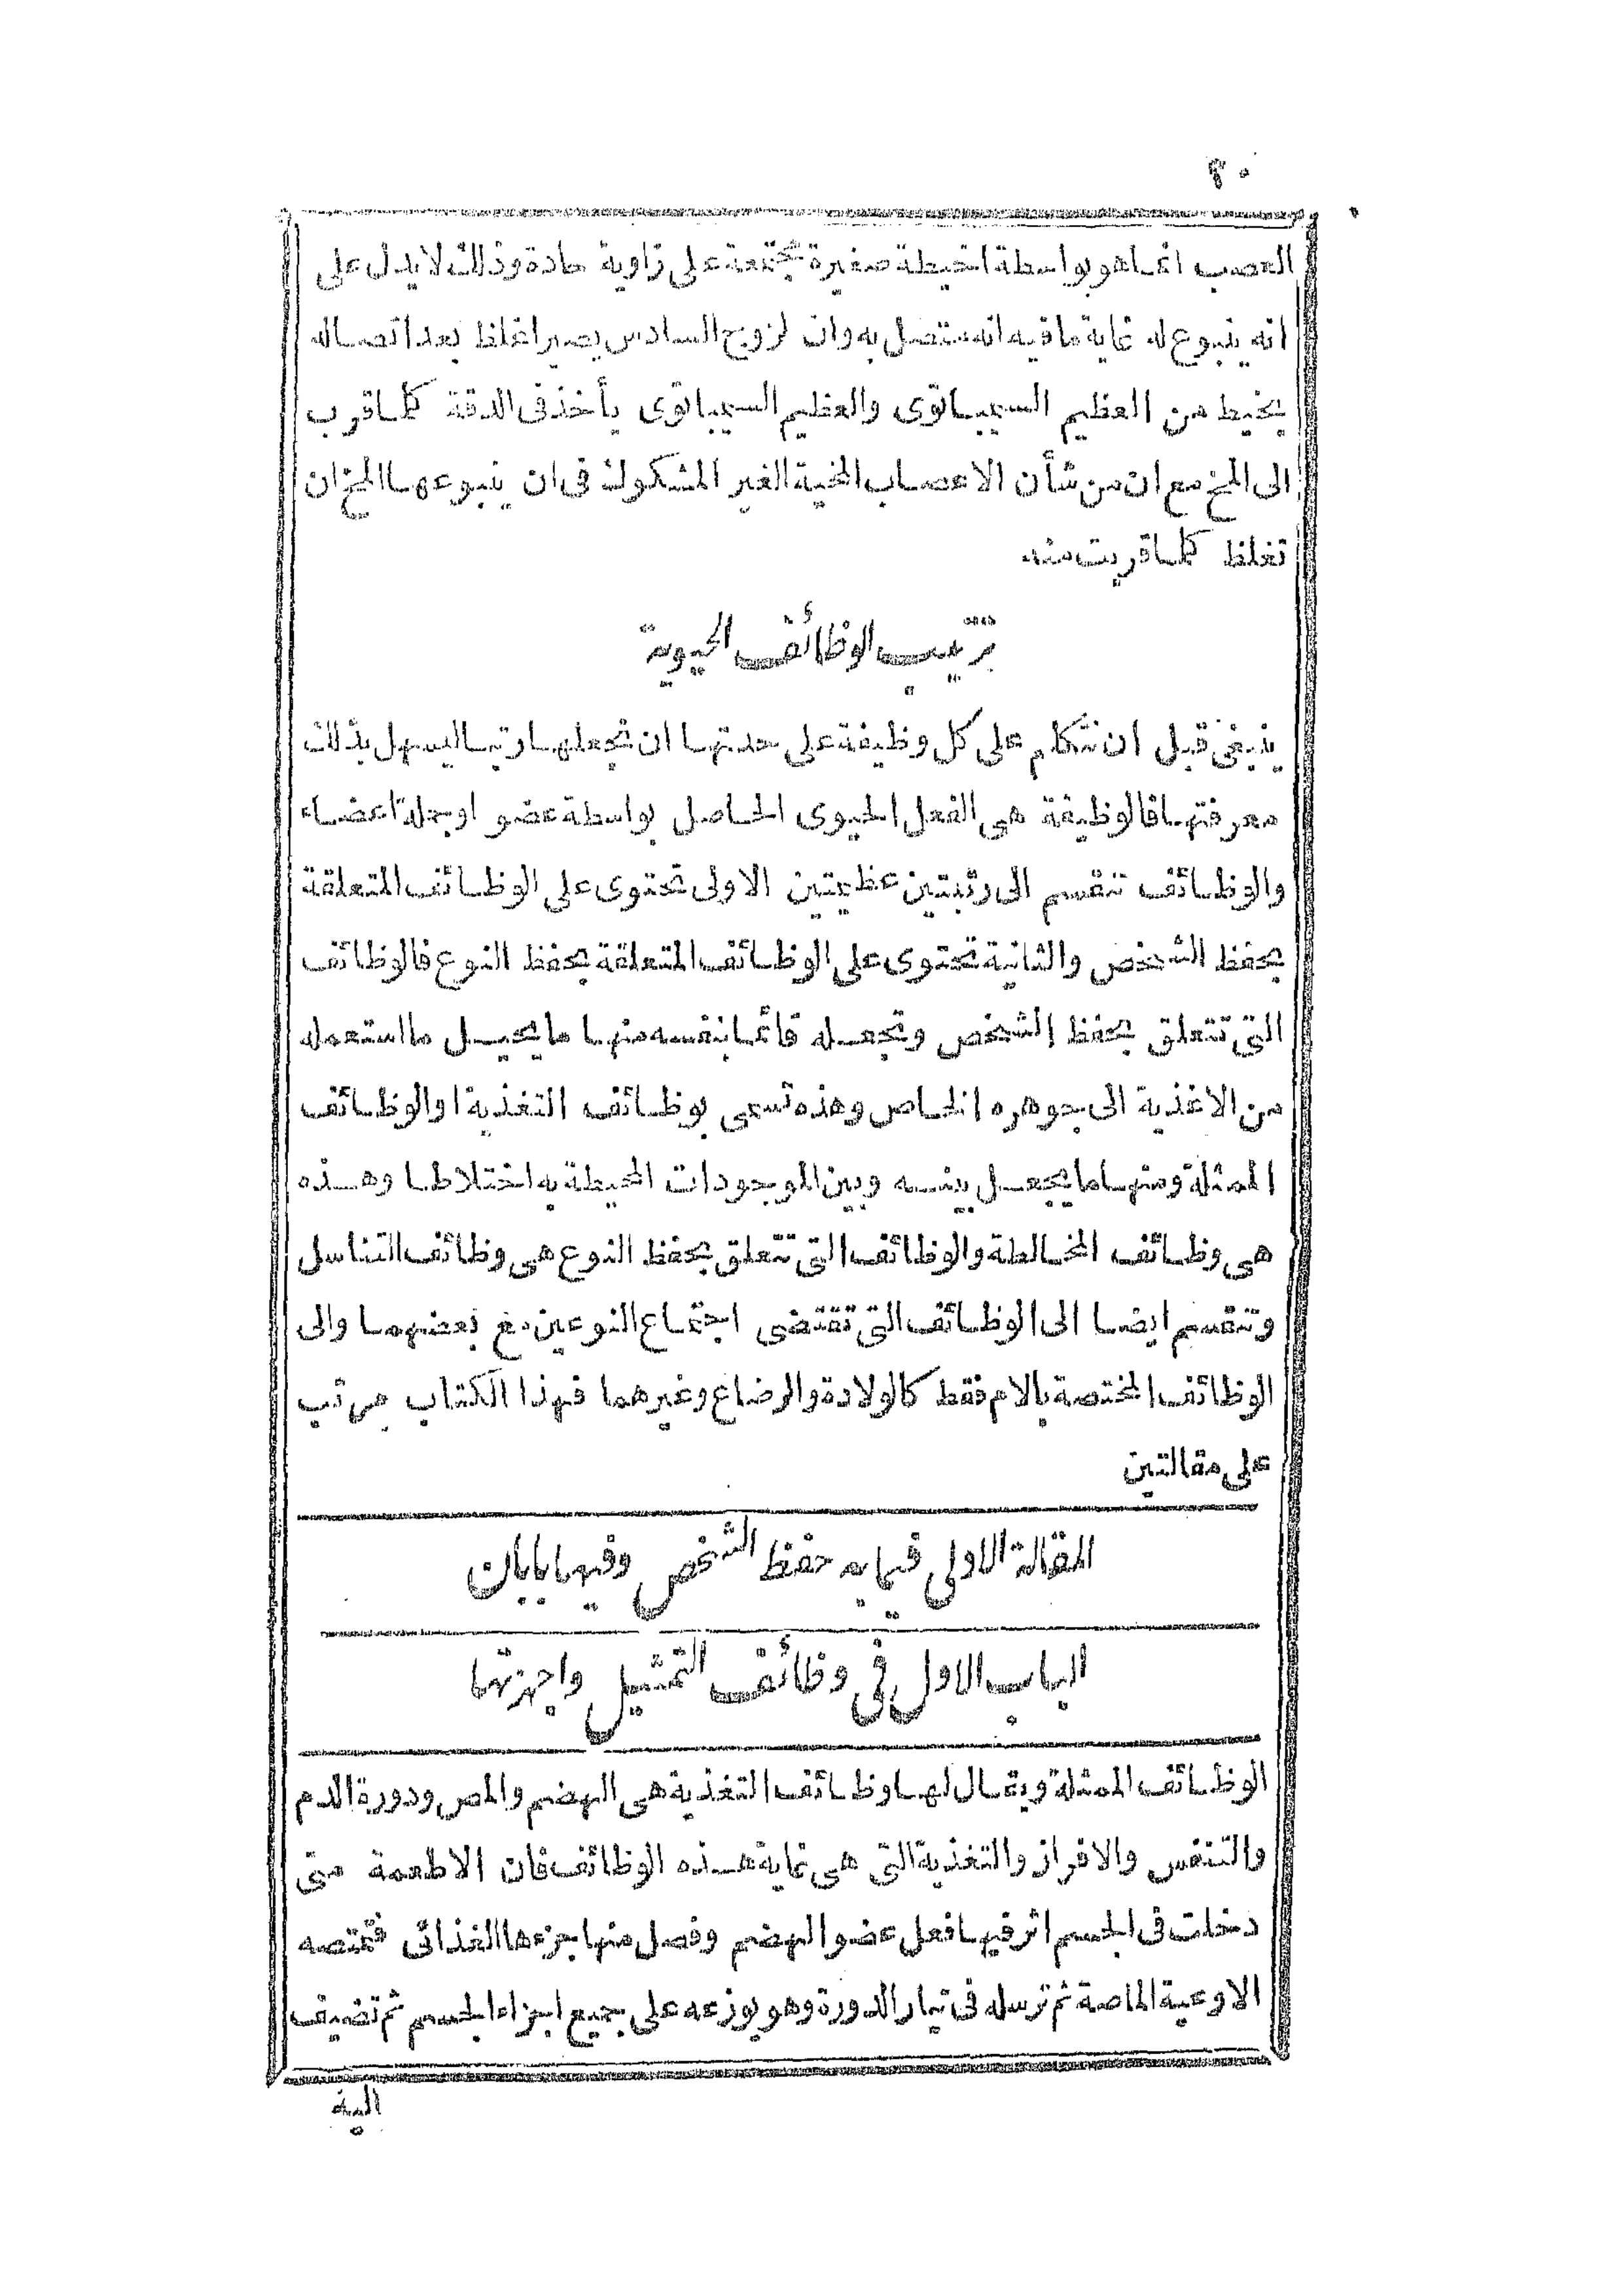 ٤٠
العصب انما هو بواسطة اخيطة صغيرة مجتمعة على زاوية حادة وذلك لا يدل على
انه ينبوع له غاية ما فيه انه متصل به وان لزوج السادس يصير اغلظ بعد اتصاله
بخيط من العظيم السيمباتوى والعظيم السيمباتوى يأخذ فى الدقة كلما قرب
الى المخ مع ان من شأن الاعصاب المخية الغير المشكوك فى ان ينبوعها المخ ان
تغلظ كلما قربت منه
ترتيب الوظائف الحيوية
ينبغى قبل ان نتكلم على كل وظيفة على حدتها ان نجعلها رتبا ليسهل بذلك
معرفتها فالوظيفة هى الفعل الحيوى الحاصل بواسطة عضو او جملة اعضاء
والوظائف تنقسم الى رتبتين عظيمتين الاولى تحتوى على الوظائف المتعلقة
بحفظ الشخص والثانية تحتوى على الوظائف المتعلقة بحفظ النوع فالوظائف
التى تتعلق بحفظ الشخص وتجعله قائما بنفسه منها ما يحيل ما استعمله
من الاغذية الى جوهره الخاص وهذه تسمى بوظائف التغذية او الوظائف
الممثلة ومنها ما يجعل بينه وبين الموجودات المحيطة به اختلاطا وهذه
هى وظائف المخالطة والوظائف التى تتعلق بحفظ النوع هى وظائف التناسل
وتنقسم ايضا الى الوظائف التى تقتضى اجتماع النوعين مع بعضهما والى
الوظائف المختصة بالام فقط كالولادة والرضاع وغيرهما فهذا الكتاب مرتب
على مقالتين
المقالة الاولى فيما به حفظ الشخص وفيها بابان
الباب الاول فى وظائف التمثيل واجهزتها
الوظائف الممثلة ويقال لها وظائف التغذية هى الهضم والمص ودورة الدم
والتنفس والافراز والتغذية التى هى غاية هذه الوظائف فان الاطعمة متى
دخلت فى الجسم اثر فيها فعل عضو الهضم وفصل منها جزءها الغذائى فتمتصه
الاوعية الماصة ثم ترسله فى تيار الدورة وهو يوزعه على جميع اجزاء الجسم ثم تضيف
اليه